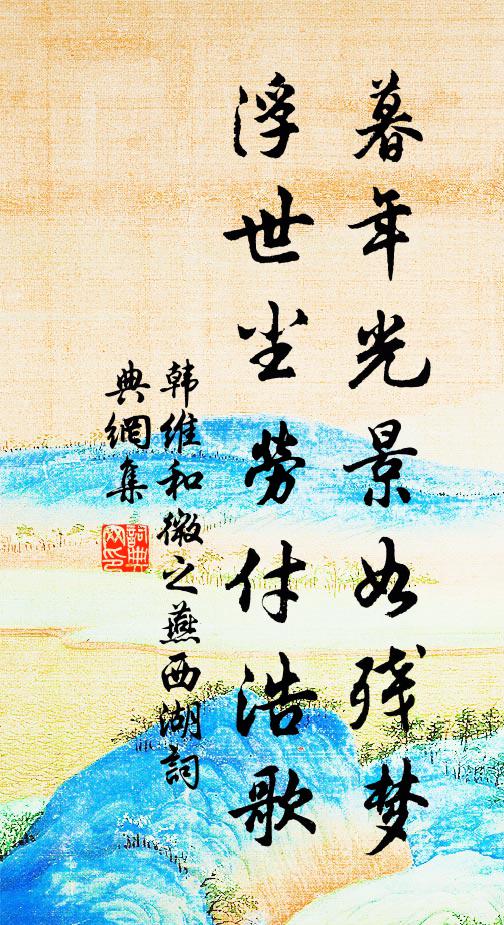 暮年光景如残梦
浮世尘勞付浩歌
韩維和微之燕西湖詞
典網集